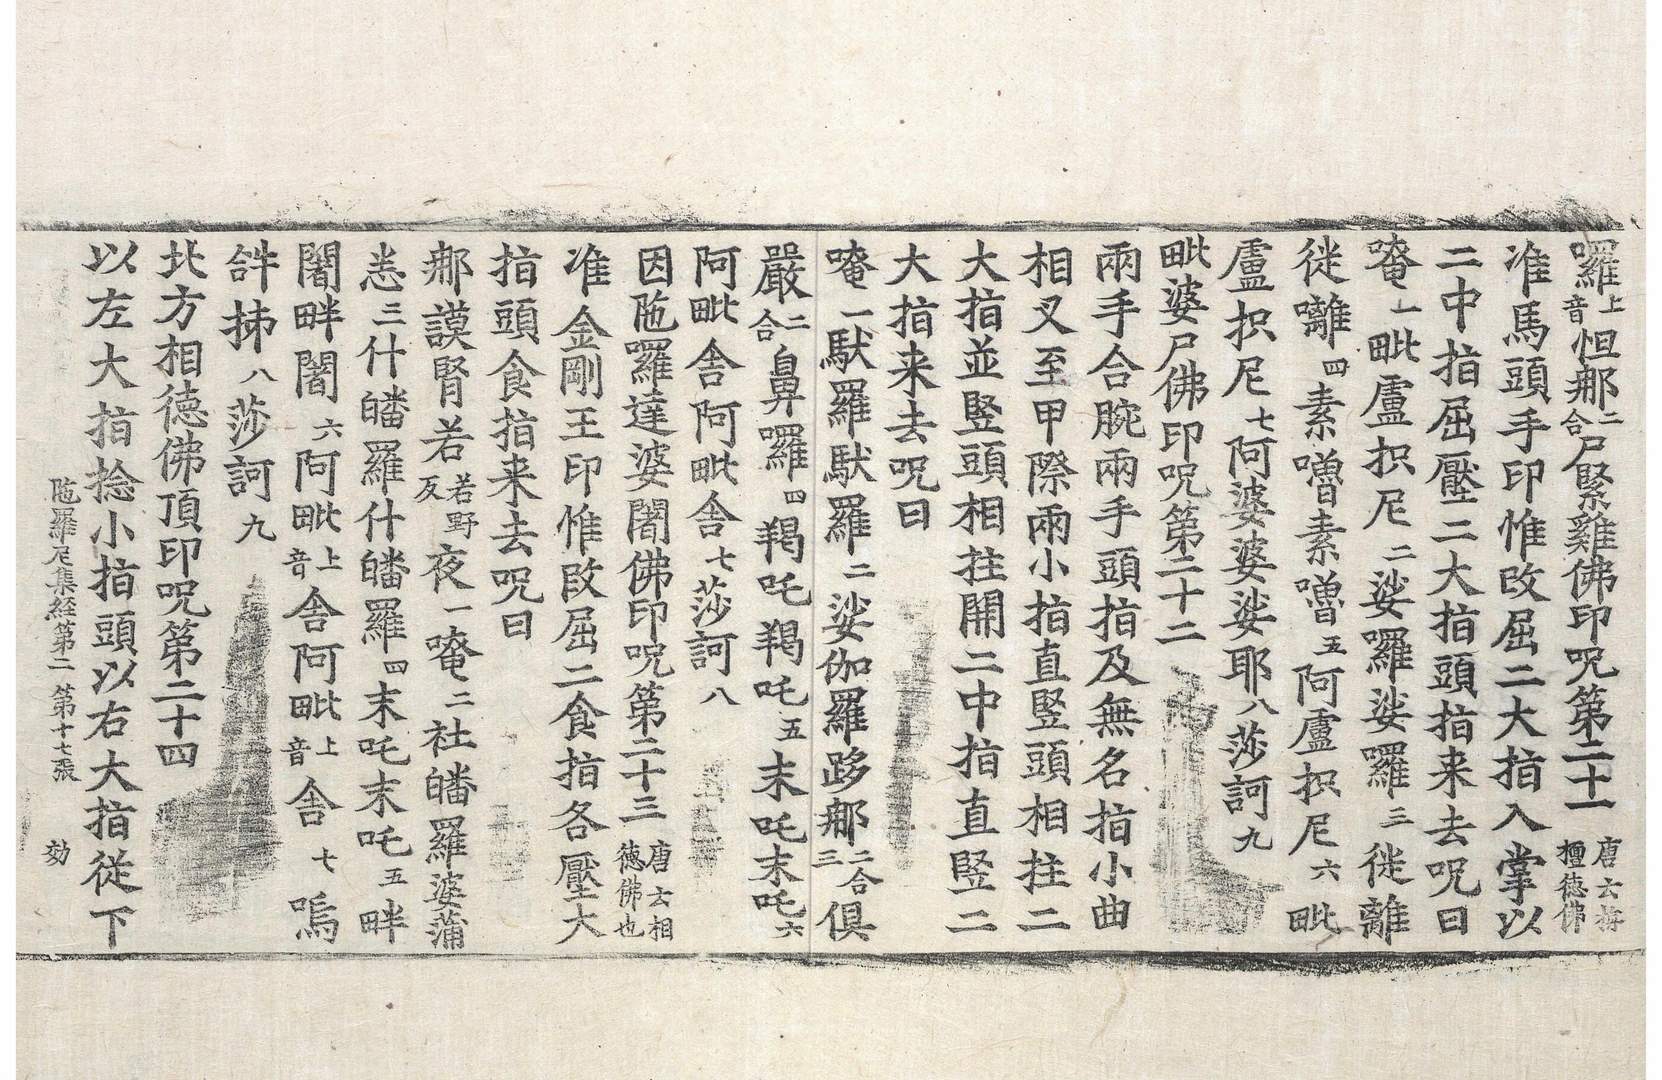 囉上音怛那二合尸緊雞佛印呪第二十一唐云栴檀德佛
准馬頭手印惟改屈二大指入掌以
二中指屈壓二大指頭指来去呪曰
唵一毗盧抧尼二娑囉娑囉三徙離
徙囇四素嚕素嚕五阿盧抧尼六毗
盧抧尼七阿婆婆娑耶八莎訶九
毗婆尸佛印呪第二十二
兩手合腕兩手頭指及無名指小曲
相叉至甲際兩小指直竪頭相拄二
大指並竪頭相拄開二中指直竪二
大指来去呪曰
唵一馱羅馱羅二娑伽羅跢那二合三俱
嚴二合鼻囉四羯吒羯吒五末吒末吒六
阿毗舍阿毗舍七莎訶八
因陁羅達婆闍佛印呪第二十三唐云相德佛也
准金剛王印惟改屈二食指各壓大
指頭食指来去呪曰
那謨腎若若野反夜一唵二社皤羅婆蒲
恙三什皤羅什皤羅四末吒末吒五畔
闍畔闍六阿毗上音舍阿毗上音舍七嗚
𤙖抹八莎訶九
北方相德佛頂印呪第二十四
以左大指捻小指頭以右大指從下
陁羅尼集経第二 第十七張 効